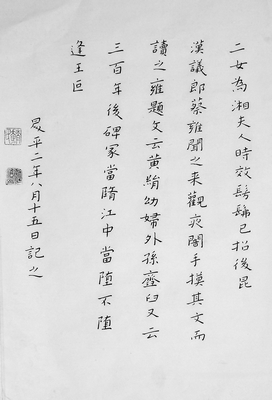 二女為湘夫人時效髣髴已招後昆
漢議郎蔡雍聞之来觀夜闇手摸其文而
讀之雍題文云黃絹幼婦外孫齏臼又云
三百年後碑冢當隋江中當堕不堕
逢王叵
昇平二年八月十五日記之